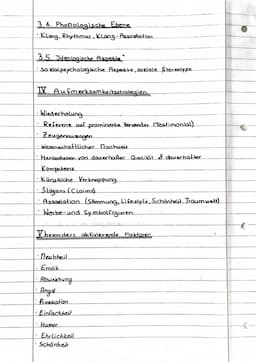 3.4. Phonologische Ebene
· Klang, Rhythmus, Klang-Assoziation
3.5. Ideologische Aspekte
· Sozialpsychologische Aspekte, soziale Stereotype
IV Aufmerksamkeitsstrategien
· Wiederholung
· Referenz auf prominente Verwender (Testimonial)
· Zeugenaussagen
· Wissenschaftlicher Nachweis
· Herausstellen von dauerhafter Qualität & dauerhafter
Kompetenz
· Künstliche Verknappung
· Slogans (Claims)
· Assoziation (Stimmung, Lifestyle, Schönheit, Traumwelt)
· Werbe- und Symbolfiguren
V besonders aktivierende Faktoren
· Neuheit
· Erotik
· Abweichung
· Angst
· Provokation
· Einfachheit
· Humor
· Ehrlichkeit
· Schönheit